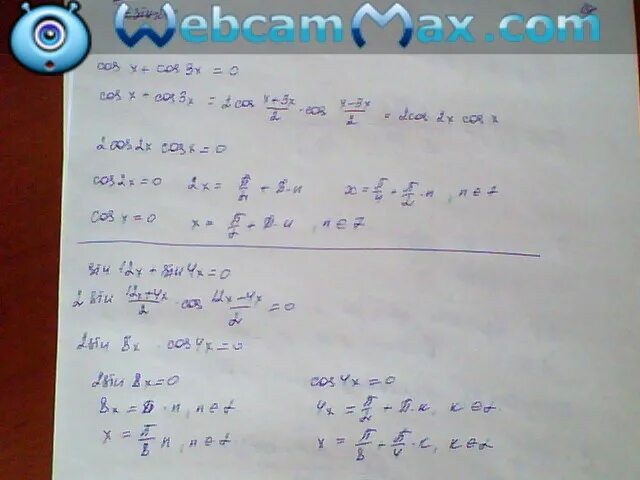 WebcamMax.com
cos x + cos 3x = 0
cos x + cos 3x = 2 cos (x+3x)/2 · cos (x-3x)/2 = 2 cos 2x cos x
2 cos 2x cos x = 0
cos 2x = 0 2x = П/2 + П·n x = П/4 + П/2·n, n ∈ Z
cos x = 0 x = П/2 + П·n, n ∈ Z
sin 12x + sin 4x = 0
2 sin (12x+4x)/2 · cos (12x-4x)/2 = 0
2 sin 8x · cos 4x = 0
2 sin 8x = 0 cos 4x = 0
8x = П·n, n ∈ Z 4x = П/2 + П·к, к ∈ Z
x = П/8 n, n ∈ Z x = П/8 + П/4·к, к ∈ Z